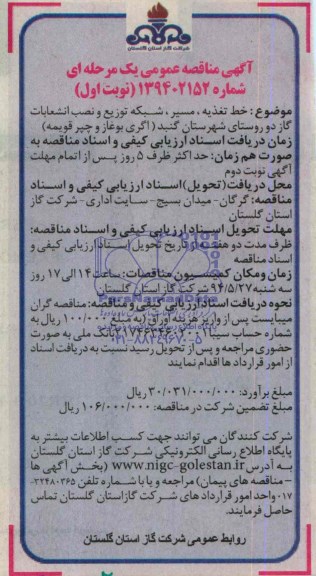 شرکت گاز استان گلستان
آگهی مناقصه عمومی یک مرحله ای
شماره ۱۳۹۴۰۲۱۵۲ (نوبت اول)
موضوع : خط تغذیه ، مسیر ، شبکه توزیع و نصب انشعابات
گاز دو روستای شهرستان گنبد ( اگری بوغاز و چپر قویمه)
زمان دریافت اسناد ارزیابی کیفی و اسناد مناقصه به
صورت هم زمان: حداکثر ظرف ۵ روز پس از اتمام مهلت
آگهی نوبت دوم
محل دریافت (تحویل) اسناد ارزیابی کیفی و اسناد
مناقصه: گرگان- میدان بسیج- سایت اداری - شرکت گاز
استان گلستان
مهلت تحویل اسناد ارزیابی کیفی و اسناد مناقصه:
ظرف مدت دو هفته از تاریخ تحویل اسناد ارزیابی کیفی و
اسناد مناقصه
زمان ومکان کمیسیون مناقصات: ساعت ۱۴ الی ۱۷ روز
سه شنبه ۹۴/۵/۲۷ شرکت گاز استان گلستان
نحوه دریافت اسناد ارزیابی کیفی و مناقصه: مناقصه گران
میبایست پس از واریز هزینه اوراق (به مبلغ ۱۰۰/۰۰۰ ریال به
شماره حساب سیبا بانک ملی به صورت
حضوری مراجعه و پس از تحویل رسید نسبت به دریافت اسناد
از امور قرارداد ها اقدام نمایند
مبلغ برآورد: ۳۰/۰۳۱/۰۰۰/۰۰۰ ریال
مبلغ تضمین شرکت در مناقصه: ۱۰۶/۰۰۰/۰۰۰ ریال
شرکت کنندگان می توانند جهت کسب اطلاعات بیشتر به
پایگاه اطلاع رسانی الکترونیکی شرکت گاز استان گلستان
به آدرس www.nigc-golestan.ir (بخش آگهی ها
- مناقصه های پیمان) مراجعه و یا با شماره تلفن ۳۲۴۸۰۳۶۵-
۰۱۷ واحد امور قرارداد های شرکت گازاستان گلستان تماس
حاصل فرمایند.
روابط عمومی شرکت گاز استان گلستان